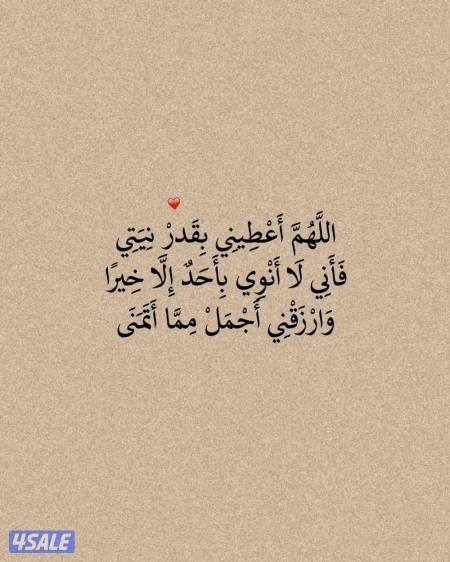 اللَّهُمَّ أَعْطِينِي بِقَدرْ نِيَتِي
فَأَنِي لَا أَنْوِي بِأَحَدٌ إِلَّا خِيرًا
وَارْزَقْنِي أَجْمَلْ مِمَّا أَتَمَنَى
4SALE